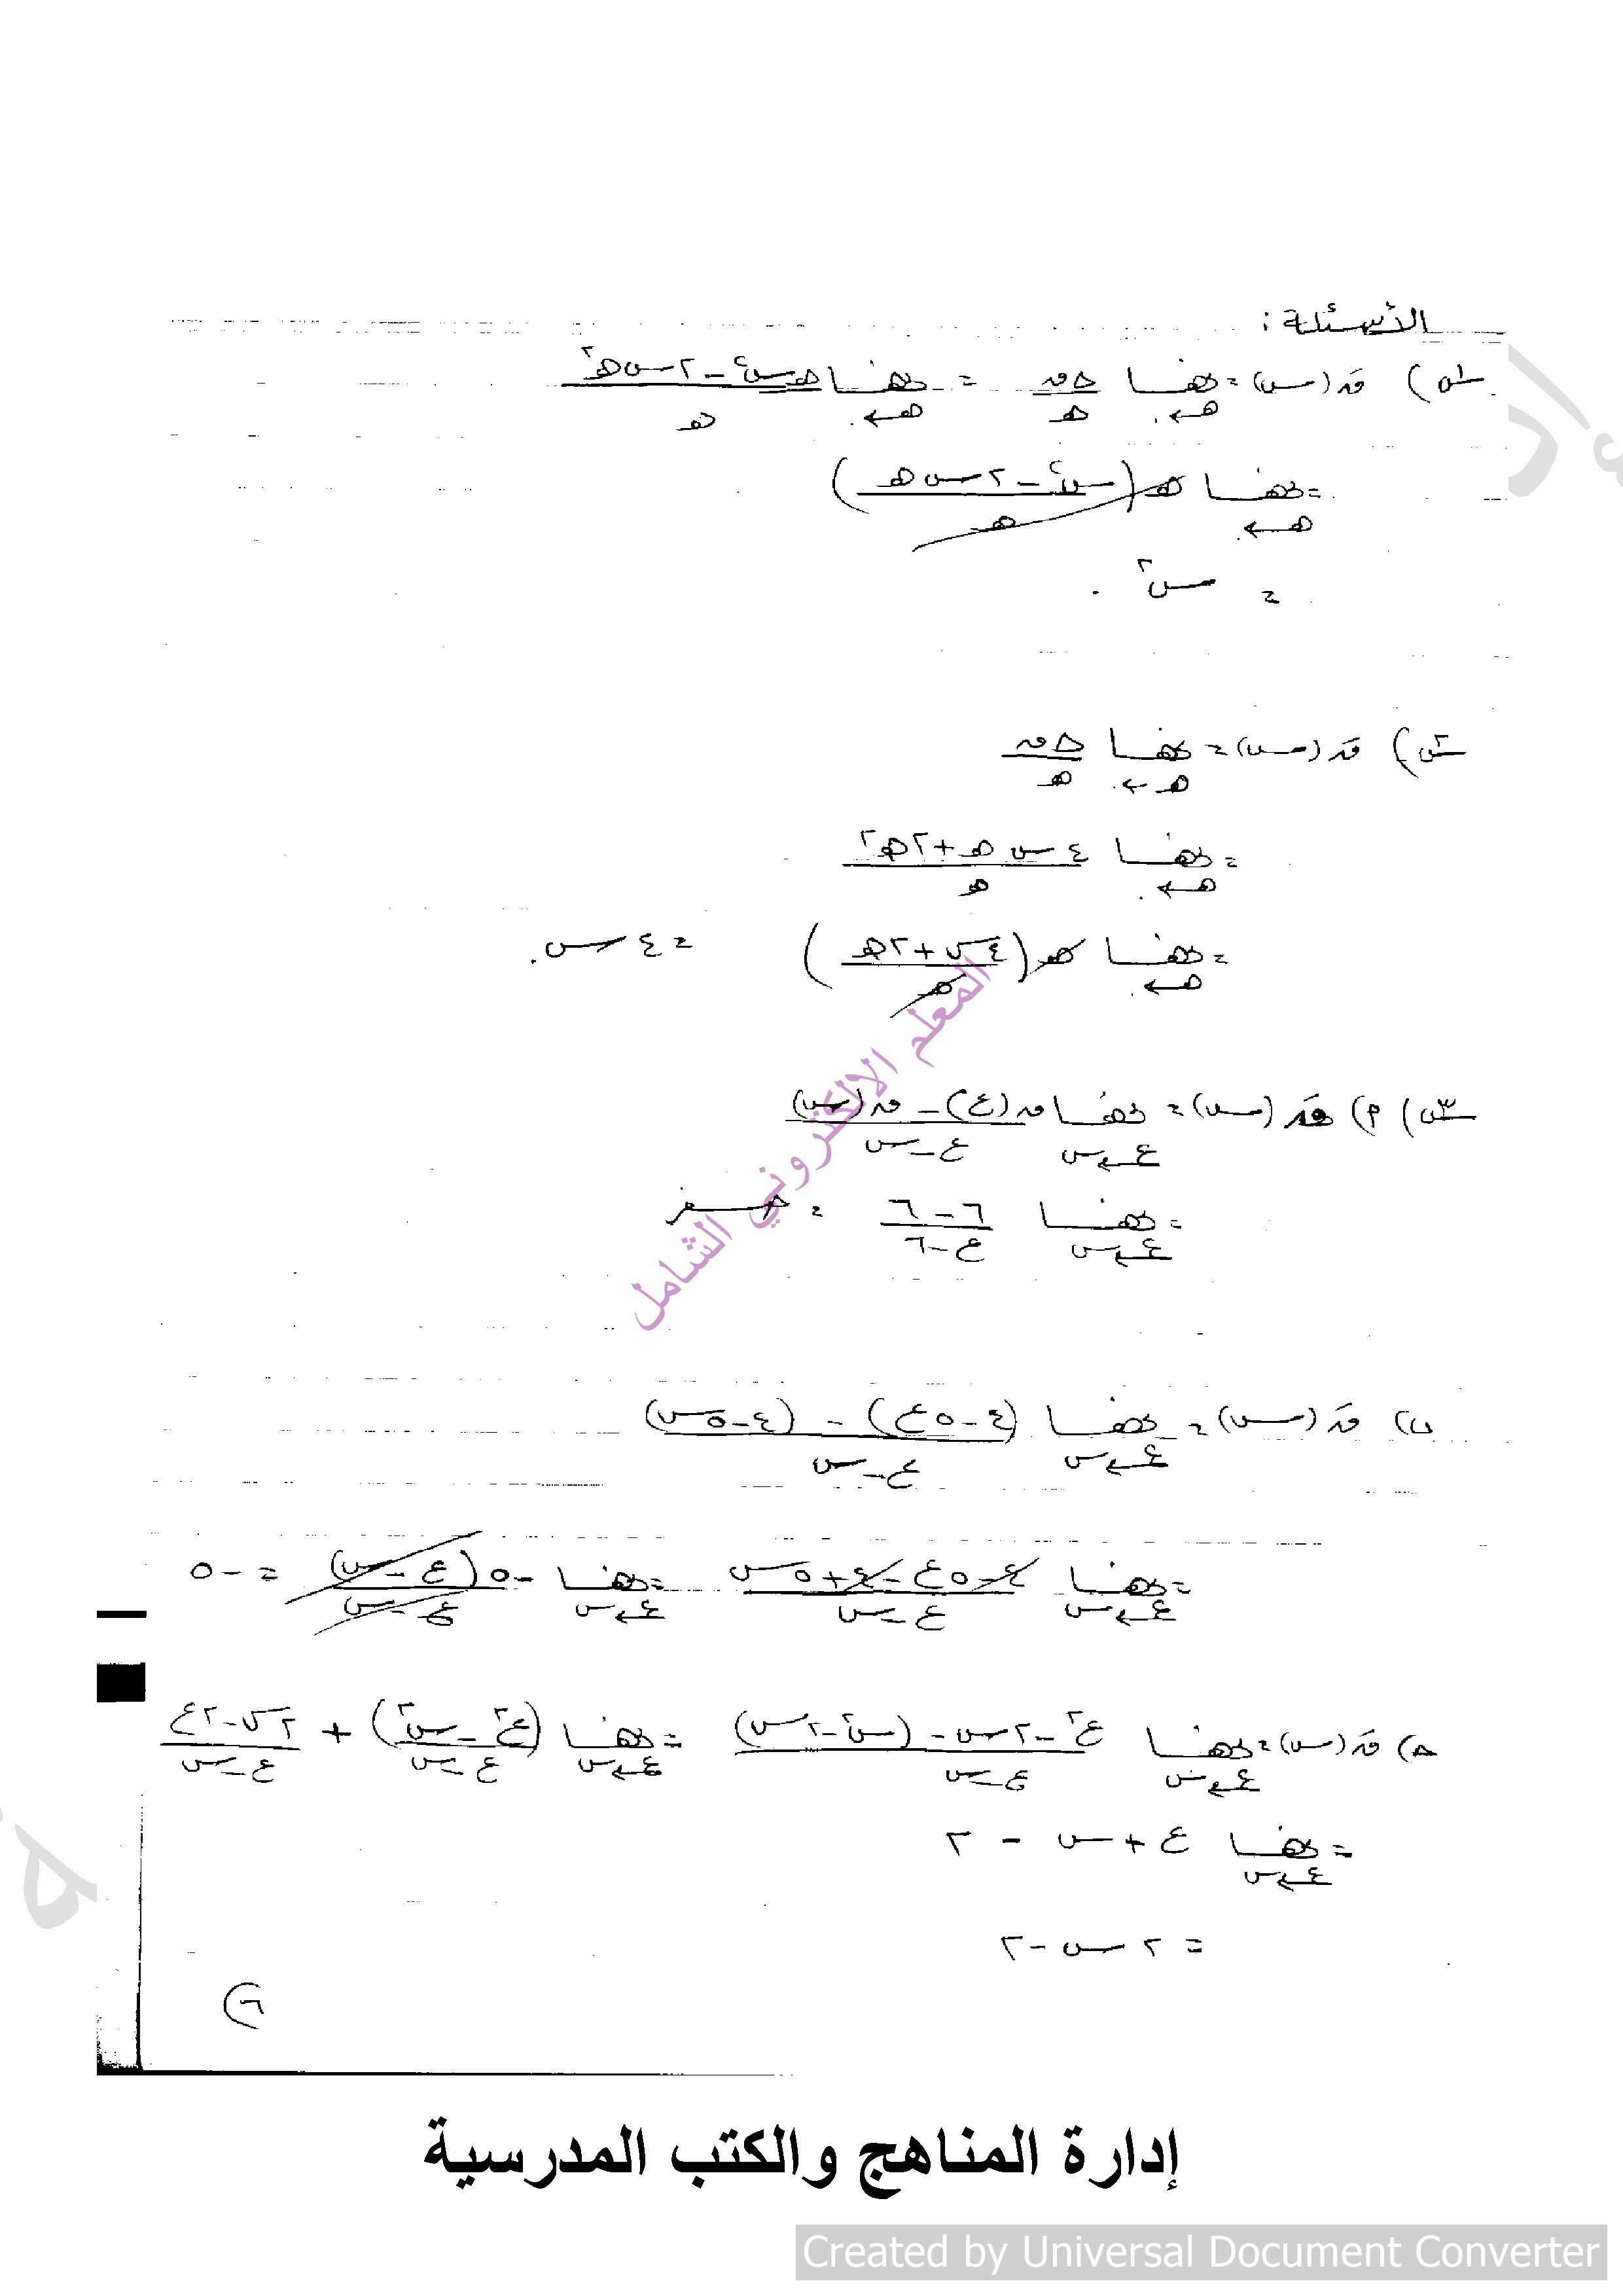 الأسئلة :
س١) قَ(س) = نهـــا هـ←٠ ∆ق/هـ = نهـــا هـ←٠ (هـ س٢ - ٢ س هـ٢)/هـ
= نهـــا هـ←٠ هـ(س٢ - ٢ س هـ)/هـ
= س٢ .
س٢) قَ(س) = نهـــا هـ←٠ ∆ق/هـ
= نهـــا هـ←٠ (٤ س هـ + ٢هـ٢)/هـ
= نهـــا هـ←٠ هـ(٤س + ٢هـ)/هـ = ٤ س .
س٣) ٢) قَ(س) = نهـــا ع←س (ق(ع) - ق(س))/(ع - س)
= نهـــا ع←س (٦ - ٦)/(ع - ٦) = صفر
ب) قَ(س) = نهـــا ع←س ((٤ - ٥ع) - (٤ - ٥س))/(ع - س)
= نهـــا ع←س (٤ - ٥ع - ٤ + ٥س)/(ع - س) = نهـــا ع←س -٥(ع - س)/(ع - س) = -٥
ج) قَ(س) = نهـــا ع←س (ع٢ - ٢س - (س٢ - ٢س))/(ع - س) = نهـــا ع←س (ع٢ - س٢)/(ع - س) + (٢س - ٢ع)/(ع - س)
= نهـــا ع←س ع + س - ٢
= ٢ س - ٢
٦
المعلم الالكتروني الشامل
إدارة المناهج والكتب المدرسية
Created by Universal Document Converter